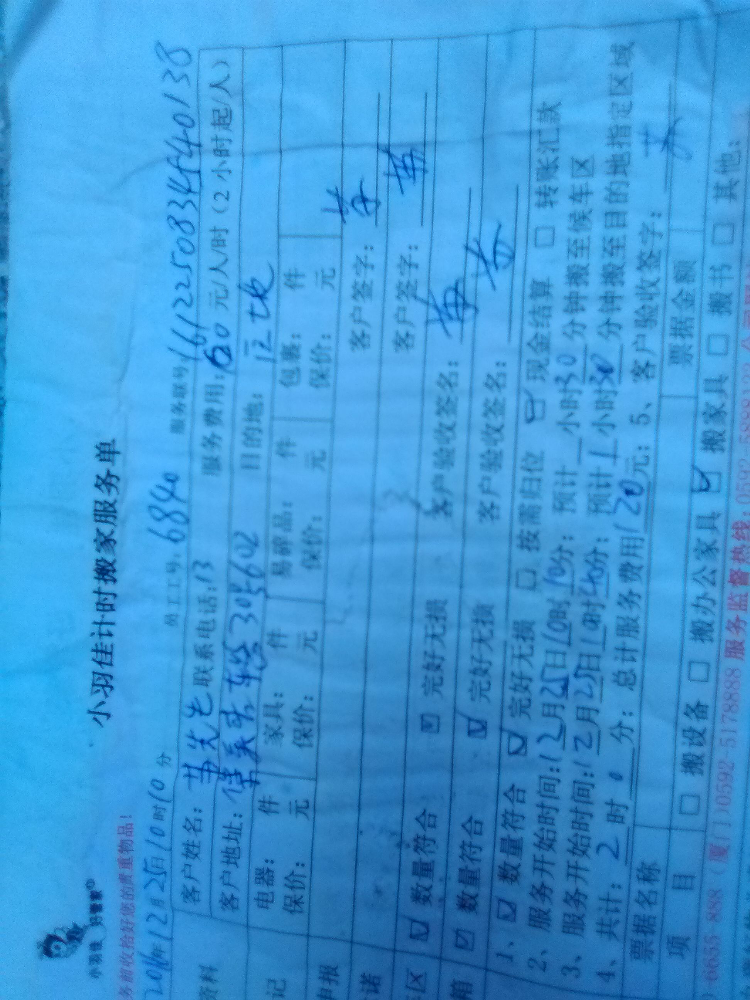 小羽佳 好管家
小羽佳计时搬家服务单
务留收拾好您的贵重物品!
2016年12月25日10时10分 员工工号:6840 服务联号16122508345440138
资料 客户姓名: 先生 联系电话:13 服务费用:60元/人/时(2小时起/人)
客户地址: 305602 目的地:
记 电器: 件 家具: 件 易碎品: 件 包裹: 件
保价: 元 保价: 元 保价: 元 保价: 元
申报 客户签字:
诺 客户签字:
车区 ☑ 数量符合 ☑ 完好无损 客户验收签名:
箱 ☑ 数量符合 ☑ 完好无损 客户验收签名:
1、☑ 数量符合 ☑ 完好无损 □ 按需归位 ☑ 现金结算 □ 转账汇款
2、服务开始时间:12月25日10时10分;预计 小时30分钟搬至候车区
3、服务开始时间:12月25日10时40分;预计1小时30分钟搬至目的地指定区域
4、共计:2时0分;总计服务费用120元;5、客户验收签字:
票据名称 票据金额
项 目 □ 搬设备 □ 搬办公家具 ☑ 搬家具 □ 搬书 □ 其他:
6655-888(厦门)0592-5178888 服务监督热线:0592-5888